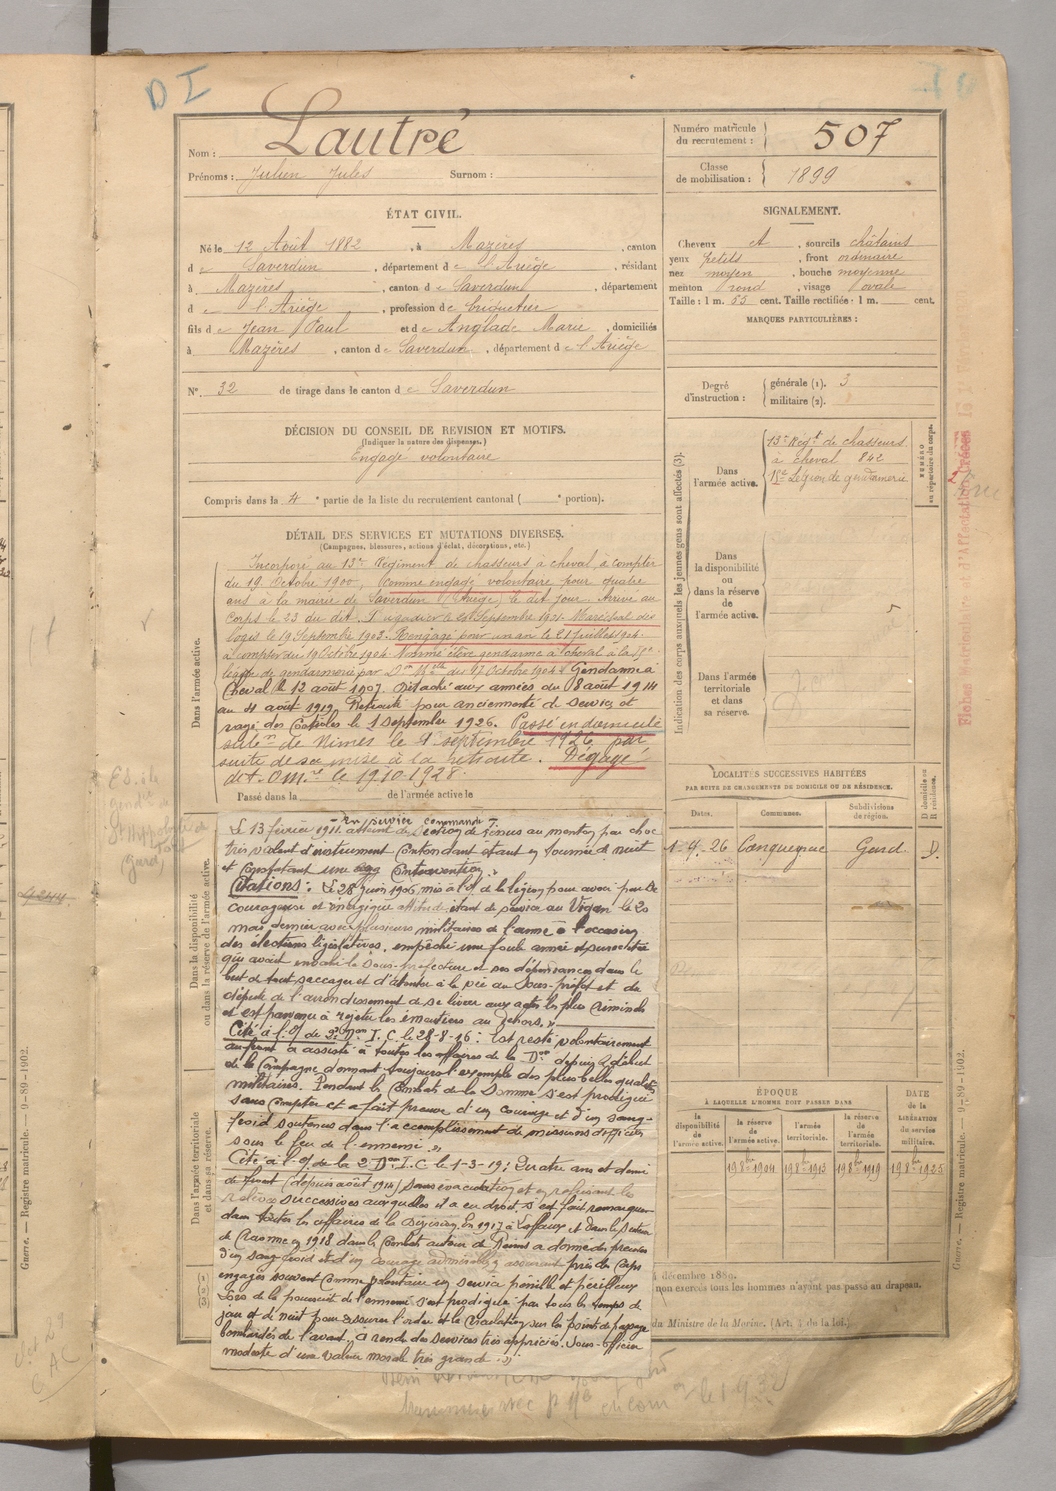 D I
Nom : Lautré
Prénoms : Julien Jules Surnom :
ÉTAT CIVIL.
Né le 12 Août 1882, à Mazères, canton
de Saverdun, département de l'Ariège, résidant
à Mazères, canton de Saverdun, département
de l'Ariège, profession de briquetier
fils de Jean Paul et de Anglade Marie, domiciliés
à Mazères, canton de Saverdun, département de l'Ariège
N° 32 de tirage dans le canton de Saverdun
DÉCISION DU CONSEIL DE REVISION ET MOTIFS.
(Indiquer la nature des dispenses.)
Engagé volontaire
Compris dans la 4e partie de la liste du recrutement cantonal ( portion).
DÉTAIL DES SERVICES ET MUTATIONS DIVERSES.
(Campagnes, blessures, actions d'éclat, décorations, etc.)
Dans l'armée active.
Incorporé au 13e Régiment de chasseurs à cheval, à compter
du 19 Octobre 1900, comme engagé volontaire pour quatre
ans à la mairie de Saverdun (Ariège) le dit jour. Arrivé au
corps le 23 du dit. Brigadier le Septembre 1901. Maréchal des
logis le 19 Septembre 1903. Rengagé pour un an le 21 Juillet 1904.
à compter du 19 Octobre 1904. Nommé élève gendarme à cheval à la
légion de gendarmerie par Don Melle du 17 Octobre 1904. Gendarme à
Cheval le 12 août 1907. Détaché aux armées du 8 août 1914
au 4 août 1919. Retraité pour ancienneté de service et
rayé des Contrôles le 1 septembre 1926. Passé en domicile
de Nimes le 1er septembre 1926 par
suite de sa mise à la retraite. Dégagé
dét. O.M. le 19.10.1928.
Passé dans la de l'armée active le
Dans la disponibilité
ou dans la réserve de l'armée active.
En service commandé
Le 13 février 1911. atteint de lésion de sinus au menton par choc
très violent d'instrument contondant étant en tournée de nuit
et constatant une Contravention.
Citations : Le 28 juin 1906, mis à l'o/ de la légion pour avoir par sa
courageuse et énergique attitude, étant de service au Vigan le 20
mai dernier avec plusieurs militaires de l'arme à l'occasion
des élections législatives, empêché une foule armée et surexcitée
qui avait envahi la Sous-préfecture et ses dépendances dans le
but de tout saccager et d'attenter à la vie du Sous-préfet et du
député de l'arrondissement de se livrer aux actes les plus criminels
et est parvenu à rejeter les émeutiers au dehors."
Cité à l'o/ de 2e Don I.C. le 28-8-16 : Est resté volontairement
au front a assisté à toutes les affaires de la Don depuis le début
de la Campagne donnant toujours l'exemple des plus belles qualités
militaires. Pendant les Combats de la Somme s'est prodigué
sans compter et a fait preuve d'un courage et d'un sang-
froid soutenus dans l'accomplissement de missions difficiles
sous le feu de l'ennemi."
Dans l'armée territoriale
et dans sa réserve.
Cité à l'o/ de la 2 Don I.C. le 1-3-19 : Quatre ans et demi
de front (depuis août 1914) sans évacuation et en refusant les
relèves successives auxquelles il a eu droit, s'est fait remarquer
dans toutes les affaires de la division. En 1917 à Laffaux et dans le secteur
de Craonne en 1918 dans les Combats autour de Reims a donné des preuves
d'un sang-froid et d'un courage admirables, assurant près des Corps
engagés souvent Comme volontaire un service pénible et périlleux
Lors de la poursuite de l'ennemi s'est prodigué par tous les temps de
jour et de nuit pour assurer l'ordre et la circulation sur les points de passage
bombardés de l'avant, a rendu des services très appréciés. Sous-officier
modeste d'une valeur morale très grande."
Numéro matricule du recrutement : 507
Classe de mobilisation : 1899
SIGNALEMENT.
Cheveux et, sourcils châtains
yeux petits, front ordinaire
nez moyen, bouche moyenne
menton rond, visage ovale
Taille : 1 m. 55 cent. Taille rectifiée : 1 m. cent.
MARQUES PARTICULIÈRES :
Degré d'instruction : générale (1). 3
militaire (2).
Indication des corps auxquels les jeunes gens sont affectés (3).
Dans l'armée active.
13e Régt de chasseurs
à Cheval 842
Légion de gendarmerie
NUMÉRO au répertoire du corps.
Dans la disponibilité ou dans la réserve de l'armée active.
Dans l'armée territoriale et dans sa réserve.
LOCALITÉS SUCCESSIVES HABITÉES
PAR SUITE DE CHANGEMENTS DE DOMICILE OU DE RÉSIDENCE.
Dates. Communes. Subdivisions de région. D domicile ou R résidence.
1-9-26 Conqueyrac Gard D.
ÉPOQUE
À LAQUELLE L'HOMME DOIT PASSER DANS
la disponibilité de l'armée active. la réserve de l'armée active. l'armée territoriale. la réserve de l'armée territoriale. DATE de la LIBÉRATION du service militaire.
19 8bre 1904 19 8bre 1913 19 8bre 1919 19 8bre 1925
décembre 1889.
non exercés tous les hommes n'ayant pas passé au drapeau.
du Ministre de la Marine. (Art. 4 de la loi.)
Guerre. — Registre matricule. — 9-89-1902.
Guerre. — Registre matricule. — 9-89-1902.